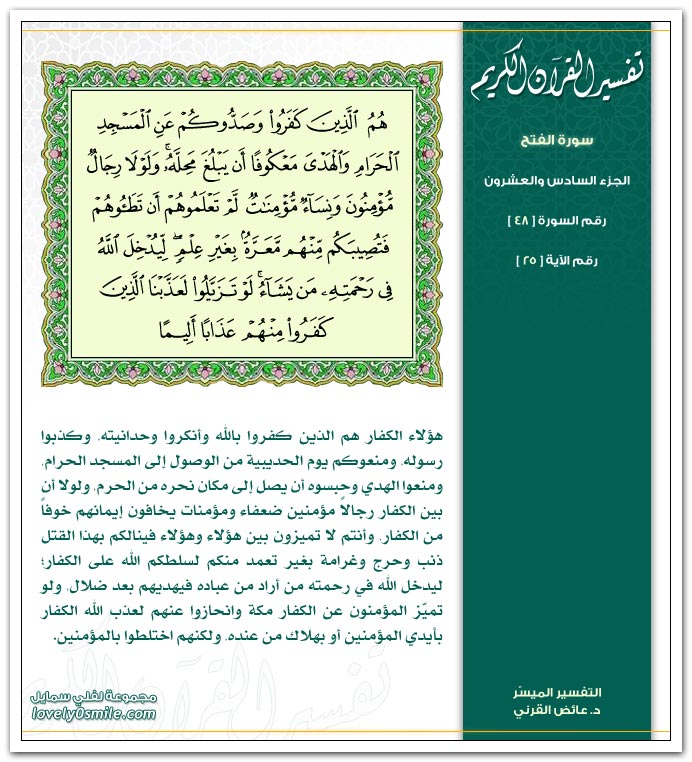 تفسير القرآن الكريم
سورة الفتح
الجزء السادس والعشرون
رقم السورة [ ٤٨ ]
رقم الآية [ ٢٥ ]
هُمُ ٱلَّذِينَ كَفَرُوا۟ وَصَدُّوكُمْ عَنِ ٱلْمَسْجِدِ
ٱلْحَرَامِ وَٱلْهَدْىَ مَعْكُوفًا أَن يَبْلُغَ مَحِلَّهُۥ ۚ وَلَوْلَا رِجَالٌ
مُّؤْمِنُونَ وَنِسَآءٌ مُّؤْمِنَٰتٌ لَّمْ تَعْلَمُوهُمْ أَن تَطَـُٔوهُمْ
فَتُصِيبَكُم مِّنْهُم مَّعَرَّةٌۢ بِغَيْرِ عِلْمٍ ۖ لِّيُدْخِلَ ٱللَّهُ
فِى رَحْمَتِهِۦ مَن يَشَآءُ ۚ لَوْ تَزَيَّلُوا۟ لَعَذَّبْنَا ٱلَّذِينَ
كَفَرُوا۟ مِنْهُمْ عَذَابًا أَلِيمًا
هؤلاء الكفار هم الذين كفروا بالله وأنكروا وحدانيته، وكذبوا
رسوله، ومنعوكم يوم الحديبية من الوصول إلى المسجد الحرام،
ومنعوا الهدي وحبسوه أن يصل إلى مكان نحره من الحرم، ولولا أن
بين الكفار رجالاً مؤمنين ضعفاء ومؤمنات يخافون إيمانهم خوفاً
من الكفار، وأنتم لا تميزون بين هؤلاء وهؤلاء فينالكم بهذا القتل
ذنب وحرج وغرامة بغير تعمد منكم لسلطكم الله على الكفار؛
ليدخل الله في رحمته من أراد من عباده فيهديهم بعد ضلال، ولو
تميّز المؤمنون عن الكفار مكة وانحازوا عنهم لعذب الله الكفار
بأيدي المؤمنين أو بهلاك من عنده، ولكنهم اختلطوا بالمؤمنين.
تفسير القرآن الكريم
مجموعة لفلي سمايل
lovely0smile.com
التفسير الميسّر
د. عائض القرني